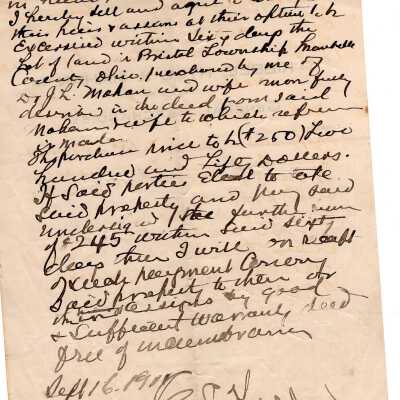 I hereby sell and agree to
their heirs & assigns at their option to be
Excersised within Sixty days the
Lot of land in Bristol Township
County, Ohio, purchased by me of
Dr J L. Mahan and wife more fully
describe in the deed from said
Mahan & wife to which reference
is made.
The purchase price to be ($250) Two
hundred and Fifty Dollars.
If Said parties Elect to take
Said property and pay said
undersigned the further sum
of $245 within said sixty
days then I will on receipt
of Said payment Convey
Said property to them or
their assigns by good
& Sufficient Warranty deed
free of incumbrance
Sept 16. 19